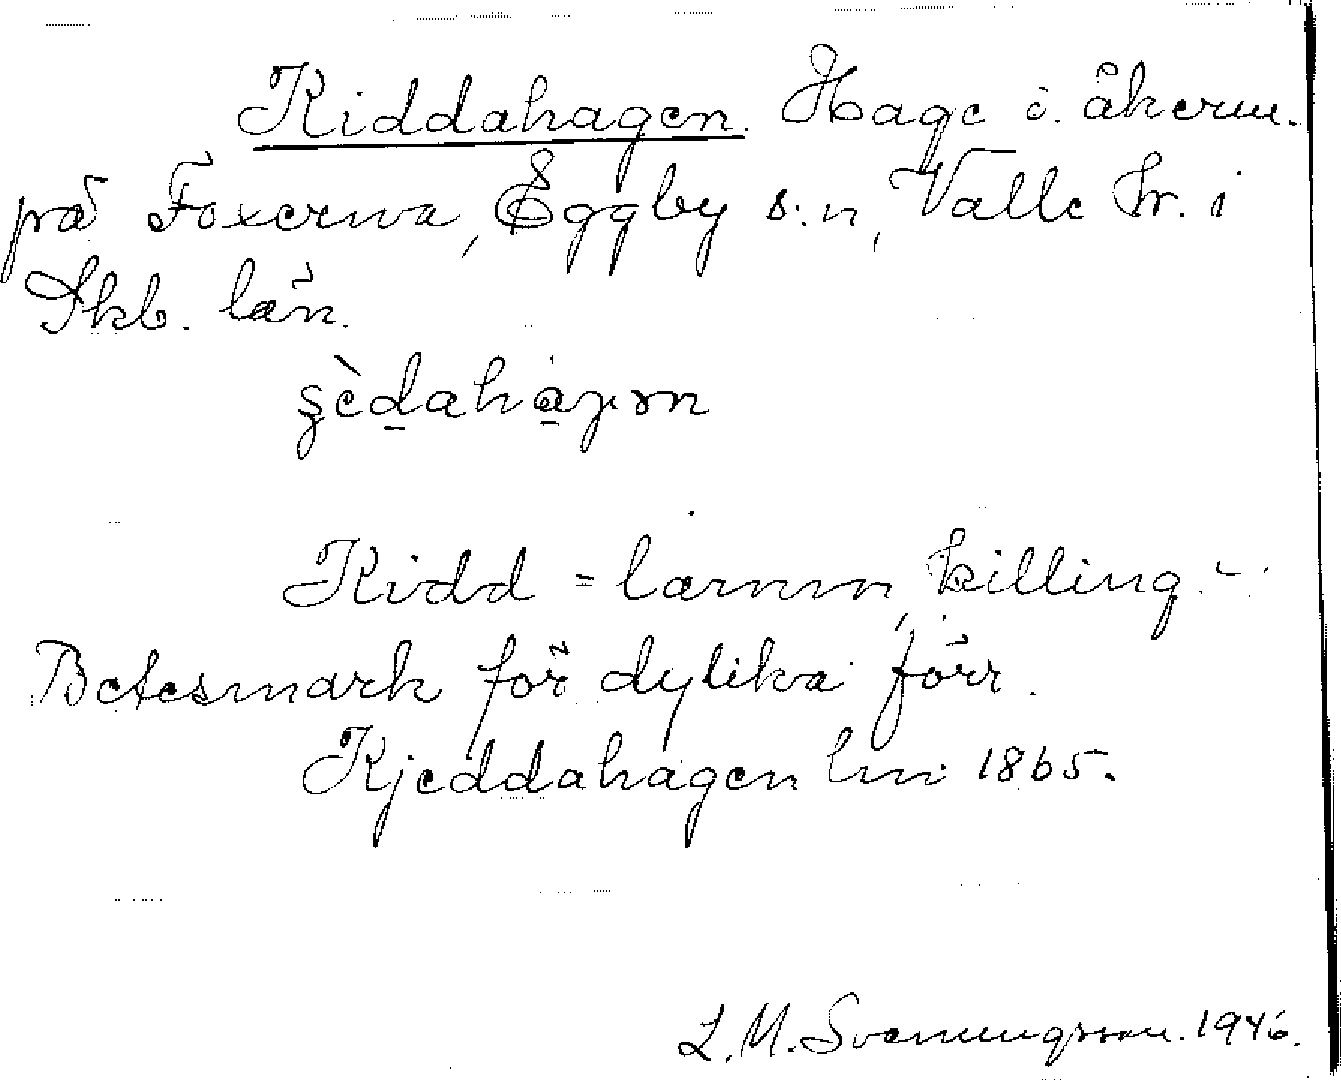 Kiddahagen. Hage o. åkerm.
på Foxerna, Eggby s:n, Valle hr. i
Skb. län.
Kidd = lamm, killing. -
Betesmark för dylika förr.
Kjeddahagen hm 1865.
L. M. Svenungsson. 1946.